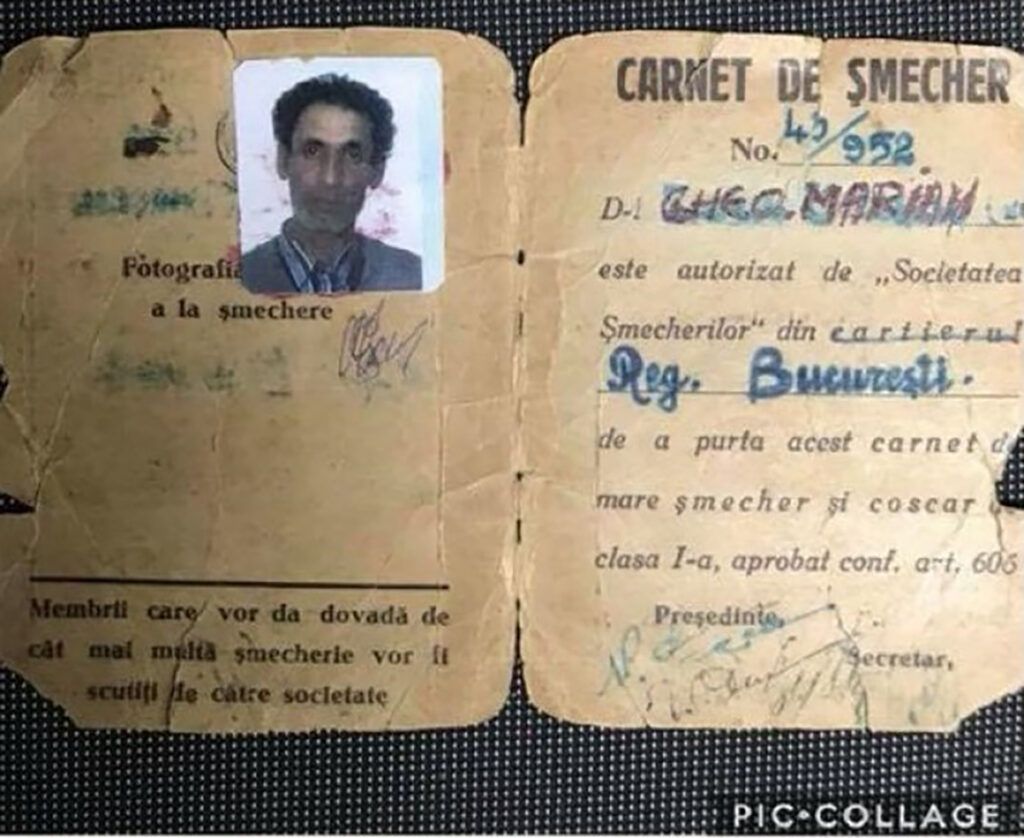 Fotografia
a la șmechere
Membrii care vor da dovadă de
cât mai multă șmecherie vor fi
scutiți de către societate
CARNET DE ȘMECHER
No. 45/952.
D-l GHEO. MARIAN
este autorizat de „Societatea
Șmecherilor" din cartierul
Reg. București.
de a purta acest carnet
mare șmecher și coscar
clasa I-a, aprobat conf. art. 606
Președinte,
Secretar,
PIC•COLLAGE